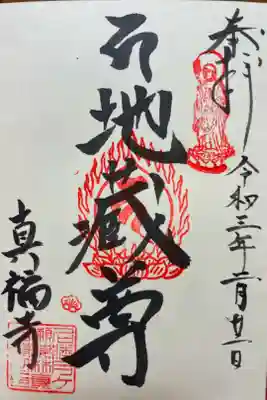 奉拝
令和三年二月廿一日
地蔵尊
真福寺